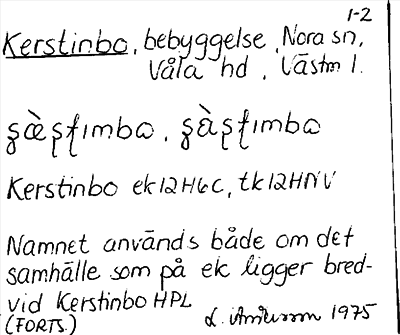 1-2
Kerstinbo, bebyggelse, Nora sn,
Våla hd, Västm l.
Kerstinbo ek 12H6C, tk 12HNV
Namnet används både om det
samhälle som på ek ligger bred-
vid Kerstinbo HPL
(FORTS.) L. Andersson 1975